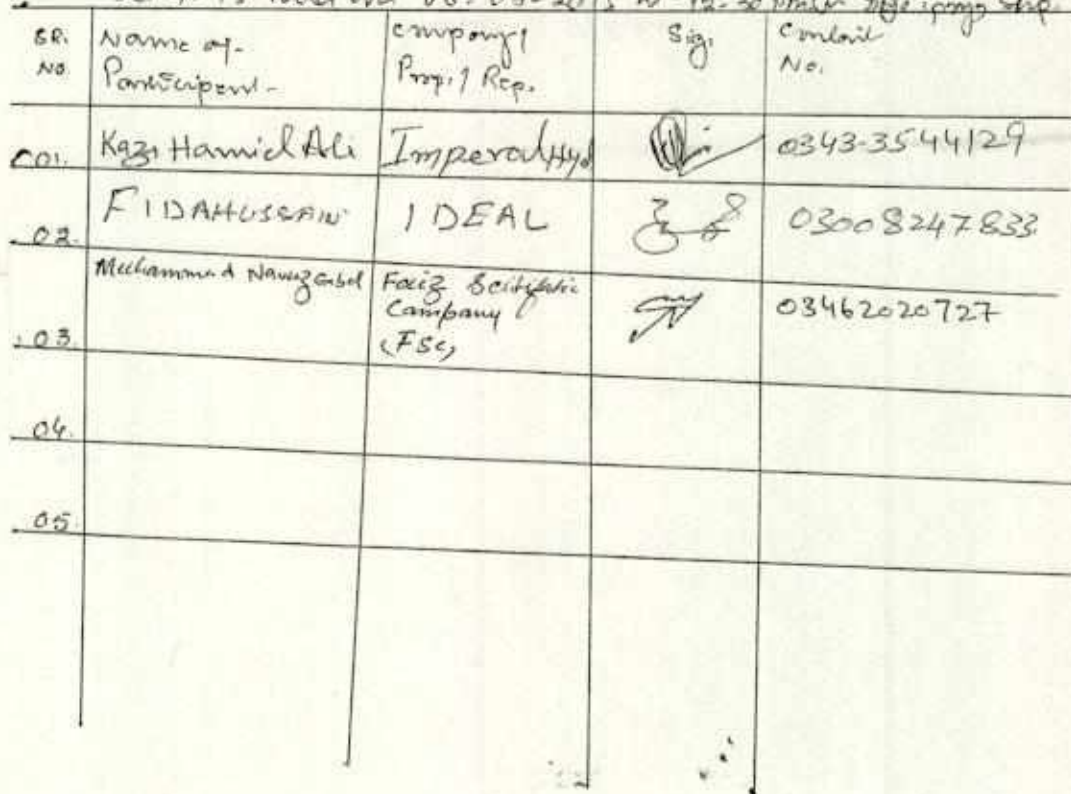 on 06-03-2013 at 12-30 pm in
SR. No. Name of Participent- Company/ Prop./ Rep. Sig. Contact No.
01. Kazi Hamid Ali Imperal Hyd 0343-3544129
02. FIDAHUSSAIN IDEAL 03008247833
03. Muhammad Nawaz Faiz Scitifitic Company (FSC) 03462020727
04.
05.